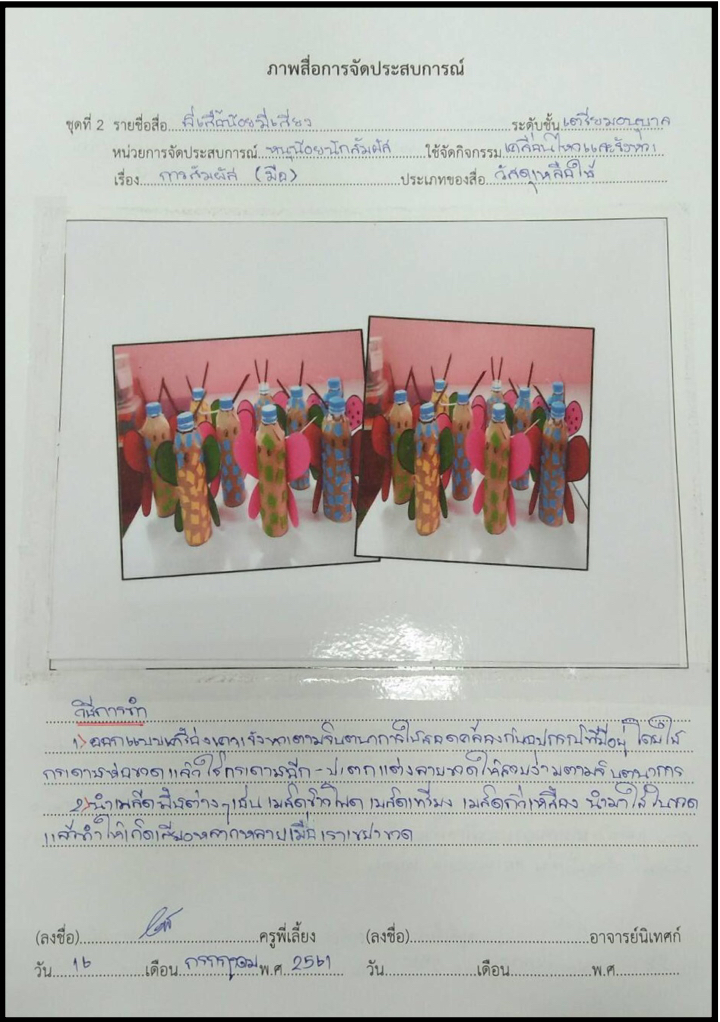 ภาพสื่อการจัดประสบการณ์
ชุดที่ 2 รายชื่อสื่อ ผีเสื้อน้อยมีเสียง ระดับชั้น เตรียมอนุบาล
หน่วยการจัดประสบการณ์ หนูน้อยนักสัมผัส ใช้จัดกิจกรรม เคลื่อนไหวและจังหวะ
เรื่อง การสัมผัส (มือ) ประเภทของสื่อ วัสดุเหลือใช้
วิธีการทำ
1) ออกแบบเครื่องเคาะจังหวะตามจินตนาการให้สอดคล้องกับอุปกรณ์ที่มีอยู่ โดยใช้
กระดาษห่อขวด แล้วใช้กระดาษฉีก-ปะตกแต่งลายขวดให้สวยงามตามจินตนาการ
2) นำเมล็ดพืชต่างๆ เช่น เมล็ดข้าวโพด เมล็ด เมล็ดถั่วเหลือง นำมาใส่ในขวด
แล้วทำให้เกิดเสียงหลากหลายเมื่อเราเขย่าขวด
(ลงชื่อ) ครูพี่เลี้ยง (ลงชื่อ) อาจารย์นิเทศก์
วัน 16 เดือน กรกฎาคม พ.ศ. 2561 วัน เดือน พ.ศ.